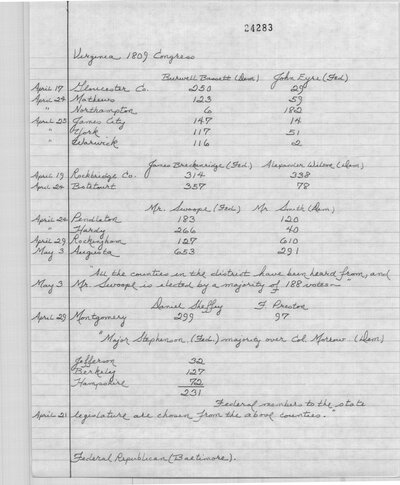 24283
Virginia 1809 Congress
Burwell Bassett (Dem) John Eyre (Fed)
April 17 Gloucester Co. 250 29
April 24 Mathews 123 59
" Northampton 6 182
April 25 James City 147 14
" York 117 51
" Warwick 116 2
James Breckinridge (Fed.) Alexander Wilson (Dem)
April 19 Rockbridge Co. 314 338
April 24 Botetourt 357 78
Mr. Swoope (Fed.) Mr. Smith (Dem)
April 24 Pendleton 183 120
" Hardy 266 40
April 29 Rockingham 127 610
May 3 Augusta 653 291
"All the counties in the district have been heard from, and
May 3 Mr. Swoope is elected by a majority of 188 votes—"
Daniel Sheffey F. Preston
April 29 Montgomery 299 97
"Major Stephenson (Fed.) majority over Col. Morrow (Dem)
Jefferson 32
Berkeley 127
Hampshire 72
231
Federal members to the state
April 21 legislature are chosen from the above counties."
Federal Republican (Baltimore).